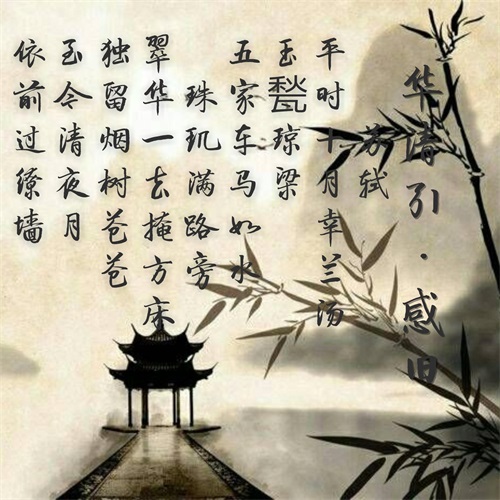 华清引·感旧
苏轼
平时十月幸兰汤
玉甃琼梁
五家车马如水
珠玑满路旁
翠华一去掩方床
独留烟树苍苍
至今清夜月
依前过缭墙